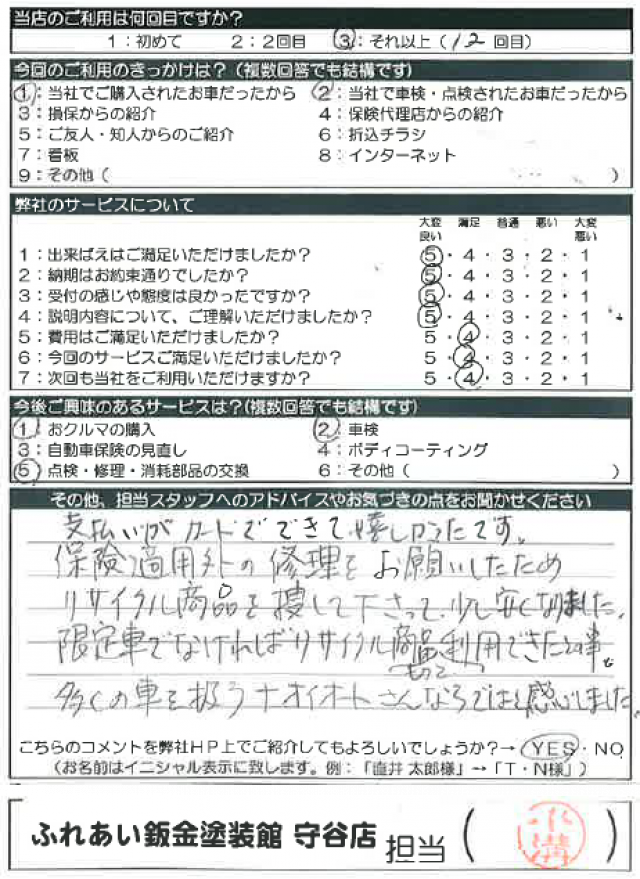 当店のご利用は何回目ですか?
1:初めて 2:2回目 3:それ以上(12 回目)
今回のご利用のきっかけは?(複数回答でも結構です)
1:当社でご購入されたお車だったから 2:当社で車検・点検されたお車だったから
3:損保からの紹介 4:保険代理店からの紹介
5:ご友人・知人からのご紹介 6:折込チラシ
7:看板 8:インターネット
9:その他( )
弊社のサービスについて
大変良い 満足 普通 悪い 大変悪い
1:出来ばえはご満足いただけましたか? 5・4・3・2・1
2:納期はお約束通りでしたか? 5・4・3・2・1
3:受付の感じや態度は良かったですか? 5・4・3・2・1
4:説明内容について、ご理解いただけましたか? 5・4・3・2・1
5:費用はご満足いただけましたか? 5・4・3・2・1
6:今回のサービスご満足いただけましたか? 5・4・3・2・1
7:次回も当社をご利用いただけますか? 5・4・3・2・1
今後ご興味のあるサービスは?(複数回答でも結構です)
1:おクルマの購入 2:車検
3:自動車保険の見直し 4:ボディコーティング
5:点検・修理・消耗部品の交換 6:その他( )
その他、担当スタッフへのアドバイスやお気づきの点をお聞かせください
支払いがカードでできて嬉しかったです。
保険適用外の修理をお願いしたため
リサイクル商品を捜して下さって、少し安くなりました。
限定車でなければリサイクル商品利用できたとの事。
もっと
多くの車を扱うナオイオートさんならではと感じました。
こちらのコメントを弊社HP上でご紹介してもよろしいでしょうか?→ YES・NO
(お名前はイニシャル表示に致します。例:「直井 太郎様」→「T・N様」)
ふれあい鈑金塗装館 守谷店 担当( 小溝 )